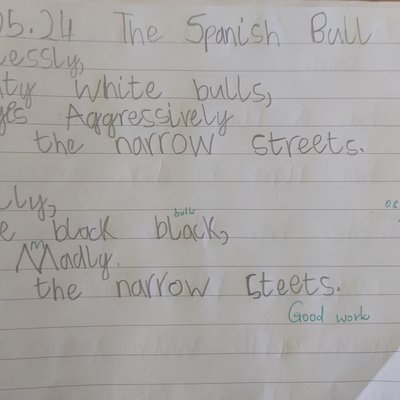 05.24 The Spanish Bull
essly,
ty White bulls,
ges Aggressively
the narrow streets.
lly,
bulls
e black black,
m
Madly.
the narrow steets.
Good work